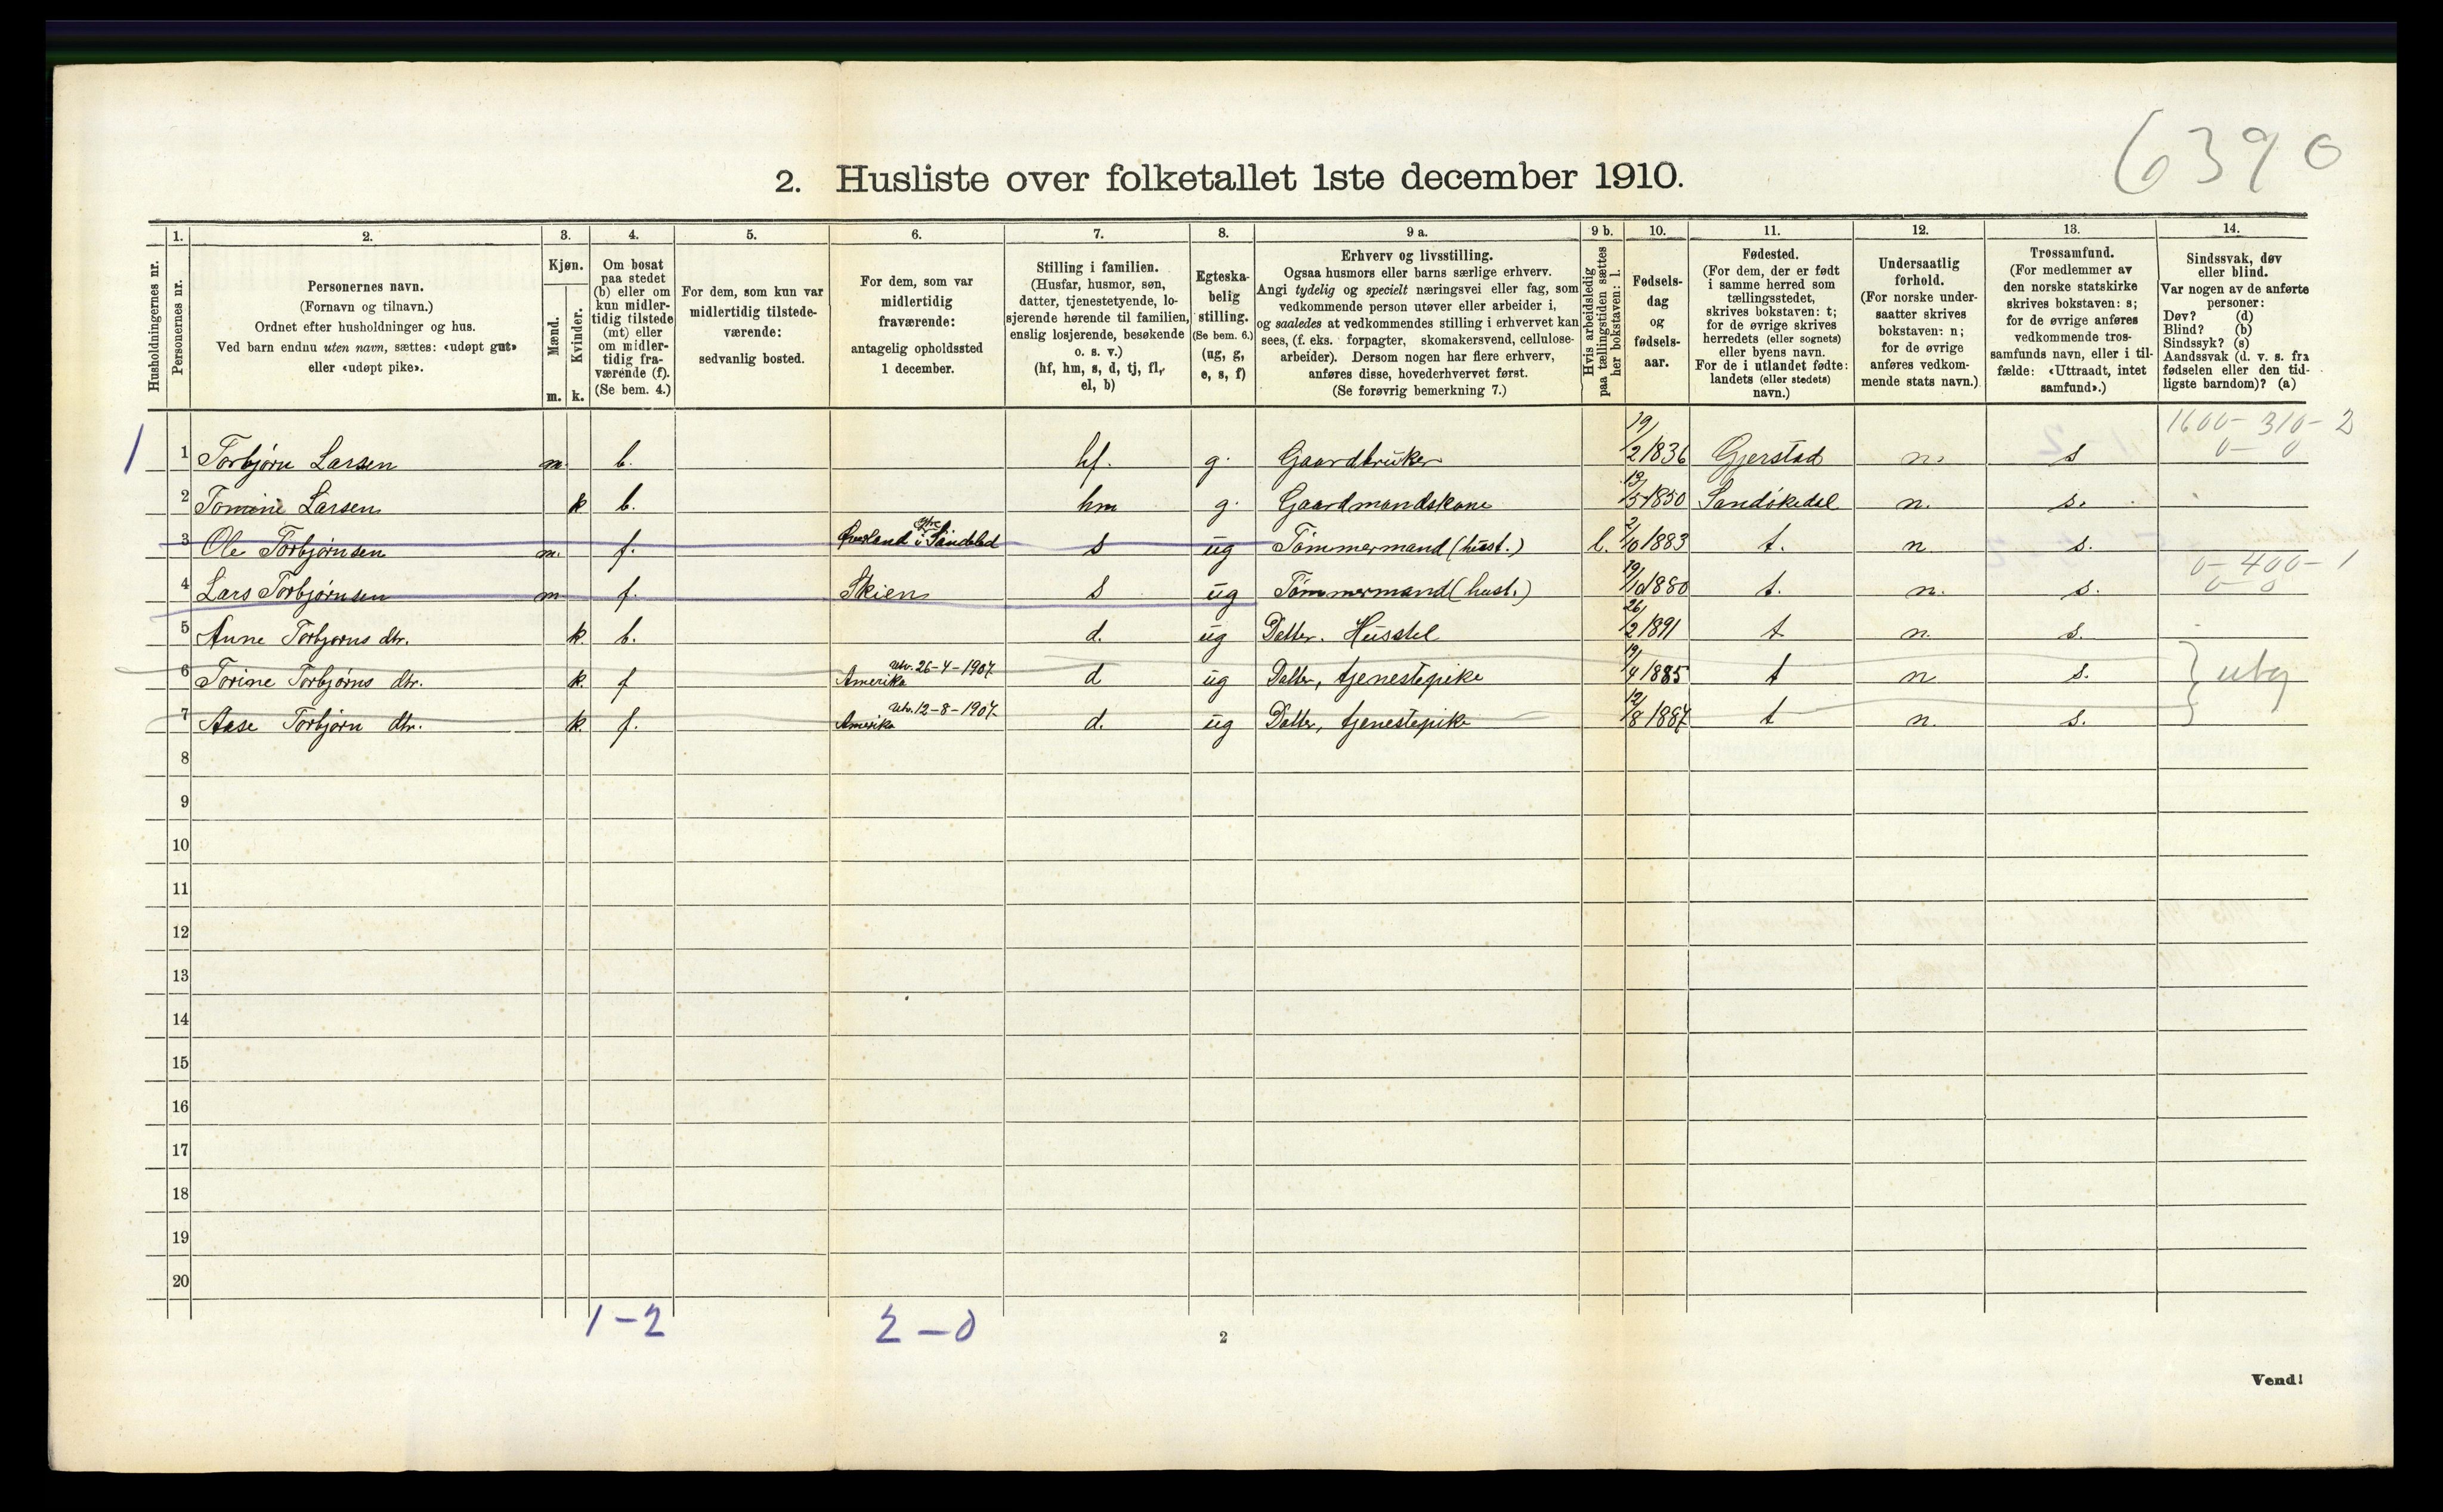 6390
2. Husliste over folketallet 1ste december 1910.
Husholdningernes nr.
1.
Personernes nr.
2.
Personernes navn.
(Fornavn og tilnavn.)
Ordnet efter husholdninger og hus.
Ved barn endnu uten navn, sættes: «udøpt gut»
eller «udøpt pike».
3.
Kjøn.
Mænd.
Kvinder.
m. k.
4.
Om bosat
paa stedet
(b) eller om
kun midler-
tidig tilstede
(mt) eller
om midler-
tidig fra-
værende (f).
(Se bem. 4.)
5.
For dem, som kun var
midlertidig tilstede-
værende:
sedvanlig bosted.
6.
For dem, som var
midlertidig
fraværende:
antagelig opholdssted
1 december.
7.
Stilling i familien.
(Husfar, husmor, søn,
datter, tjenestetyende, lo-
sjerende hørende til familien,
enslig losjerende, besøkende
o. s. v.)
(hf, hm, s, d, tj, fl,
el, b)
8.
Egteska-
belig
stilling.
(Se bem. 6.)
(ug, g,
e, s, f)
9 a.
Erhverv og livsstilling.
Ogsaa husmors eller barns særlige erhverv.
Angi tydelig og specielt næringsvei eller fag, som
vedkommende person utøver eller arbeider i,
og saaledes at vedkommendes stilling i erhvervet kan
sees, (f. eks. forpagter, skomakersvend, cellulose-
arbeider). Dersom nogen har flere erhverv,
anføres disse, hovederhvervet først.
(Se forøvrig bemerkning 7.)
9 b.
Hvis arbeidsledig
paa tællingstiden sættes
her bokstaven: l.
10.
Fødsels-
dag
og
fødsels-
aar.
11.
Fødested.
(For dem, der er født
i samme herred som
tællingsstedet,
skrives bokstaven: t;
for de øvrige skrives
herredets (eller sognets)
eller byens navn.
For de i utlandet fødte:
landets (eller stedets)
navn.)
12.
Undersaatlig
forhold.
(For norske under-
saatter skrives
bokstaven: n;
for de øvrige
anføres vedkom-
mende stats navn.)
13.
Trossamfund.
(For medlemmer av
den norske statskirke
skrives bokstaven: s;
for de øvrige anføres
vedkommende tros-
samfunds navn, eller i til-
fælde: «Uttraadt, intet
samfund».)
14.
Sindssvak, døv
eller blind.
Var nogen av de anførte
personer:
Døv? (d)
Blind? (b)
Sindssyk? (s)
Aandssvak (d. v. s. fra
fødselen eller den tid-
ligste barndom)? (a)
1600-310-2
0-0
1 1 Torbjørn Larsen m. b. hf. g. Gaardbruker 19/2 1836 Gjerstad n. s
2 Tomine Larsen k b. hm g. Gaardmandskone 13/5 1850 Sandøkedal n. s.
3 Ole Torbjørnsen m. f. i Søndeled s ug Tømmermand (hust.) l. 2/10 1883 t. n. s.
0-400-1
0-0
4 Lars Torbjørnsen m f. Skien s ug Tømmermand (hust.) 19/10 1880 t. n. s.
5 Anne Torbjørns dtr. k. b. d. ug Datter. Husstel 26/2 1891 t n. s.
6 Torine Torbjørns dtr. k. f Utv. 26-4-1907. Amerika d ug Datter, tjenestepike 19/4 1885 t n s. utg
7 Aase Torbjørn dtr. k. f. Utv. 12-8-1907. Amerika d. ug Datter, tjenestepike 12/8 1887 t n. s.
8
9
10
11
12
13
14
15
16
17
18
19
20
1-2 2-0
2
Vend!